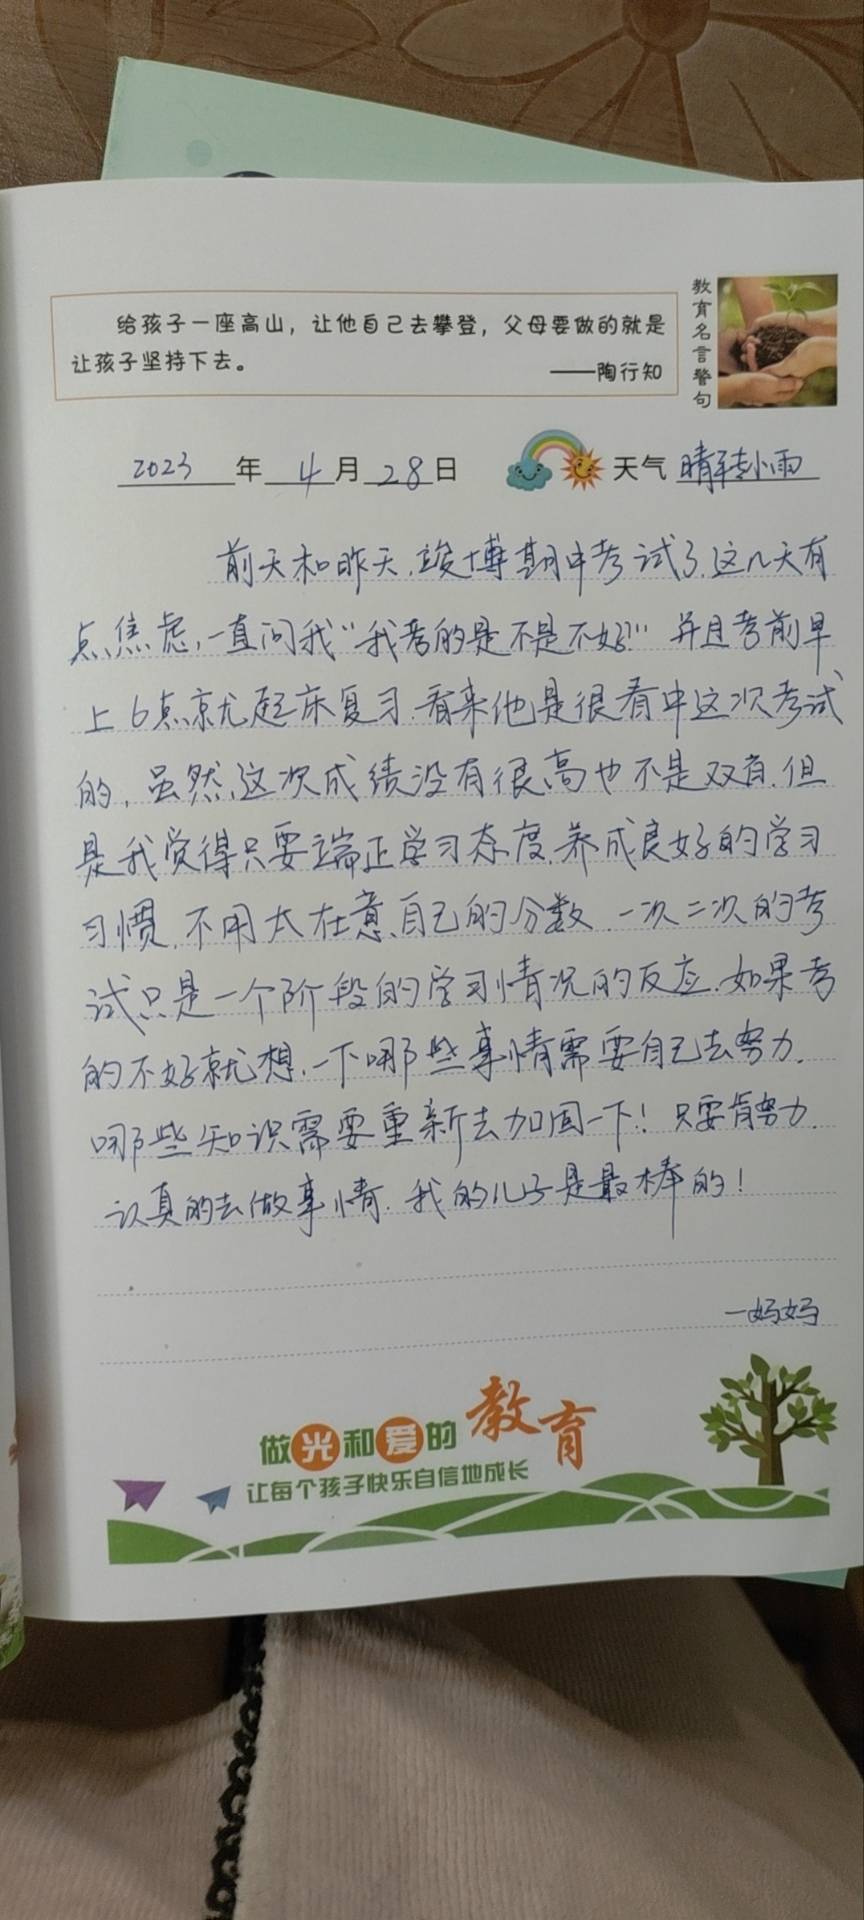 给孩子一座高山，让他自己去攀登，父母要做的就是
让孩子坚持下去。
——陶行知
教育名言警句
2023年4月28日 天气 晴转小雨
前天和昨天，竣博期中考试了，这几天有
点焦虑，一直问我“我考的是不是不好？”并且考前早
上6点就起床复习，看来他是很看中这次考试
的，虽然，这次成绩没有很高也不是双百，但
是我觉得只要端正学习态度，养成良好的学习
习惯，不用太在意自己的分数，一次二次的考
试只是一个阶段的学习情况的反应，如果考
的不好就想一下哪些事情需要自己去努力，
哪些知识需要重新去加固一下！只要肯努力，
认真的去做事情，我的儿子是最棒的！
—妈妈
做光和爱的教育
让每个孩子快乐自信地成长